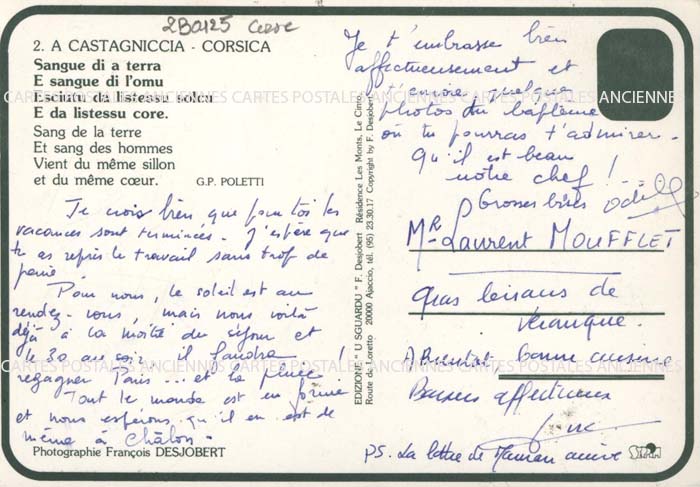 2B0125 Corse
2. A CASTAGNICCIA - CORSICA
Sangue di a terra
E sangue di l'omu
Esciutu da listessu solcu
E da listessu core.
Sang de la terre
Et sang des hommes
Vient du même sillon
et du même cœur. G.P. POLETTI
CARTES POSTALES ANCIENNES CARTES POSTALES ANCIENNES CARTES POSTALES ANCIENNES
Je crois bien que pour toi les
vacances sont terminées. J'espère que
tu as repris le travail sans trop de
peine.
Pour nous, le soleil est au
rendez-vous, mais nous voilà
déjà à la moitié du séjour et
le 30 au soir il faudra
regagner Paris... et la pluie!
Tout le monde est en forme
et nous espérons qu'il en est de
même à Châlon.
Photographie François DESJOBERT
EDIZIONE "U SGUARDU" F. Desjobert Résidence Les Monts, Le Cinto,
Route du Loretto 20000 Ajaccio, tél. (95) 23.30.17 Copyright by F. Desjobert
Je t'embrasse bien
affectueusement et
t'envoie quelques
photos du baptême
où tu pourras t'admirer.
Qu'il est beau
notre chef!
Grosses bises Odile
Mr Laurent MOUFFLET
Gros bisous de
Véronique.
A Bientôt bonne
Baisers affectueux
PS. La lettre de Maman arrive
CARTES POSTALES ANCIENNES CARTES POSTALES ANCIENNES CARTES POSTALES ANCIENNES